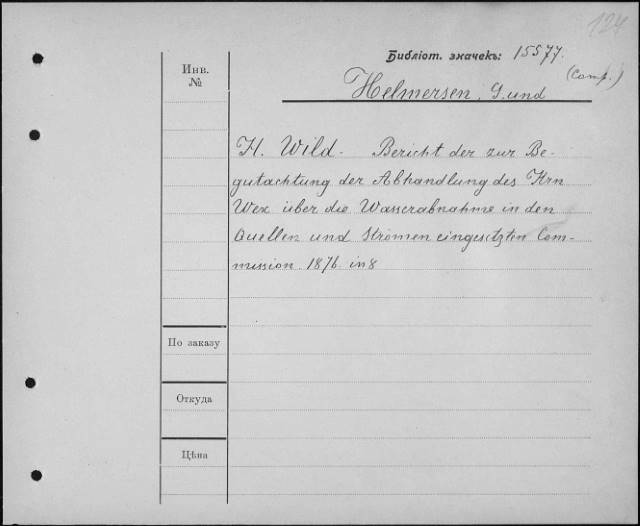 124
Библіот. значекъ: 15577.
(Comp.)
Helmersen, G. und
Инв.
№
H. Wild. Bericht der zur Be-
gutachtung der Abhandlung des Hrn
Wex über die Wasserabnahme in den
Quellen und Strömen eingesetzten Com-
mission. 1876. in 8
По заказу
Откуда
Цѣна